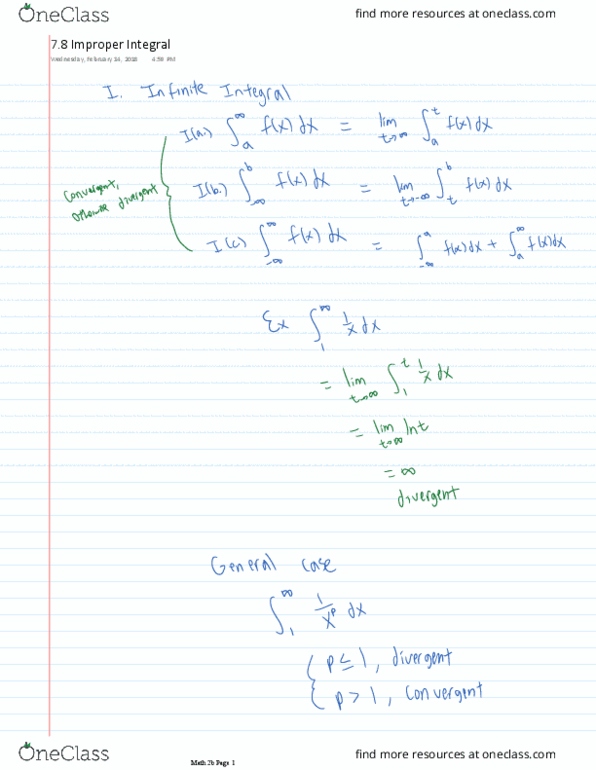 OneClass find more resources at oneclass.com
7.8 Improper Integral
Wednesday, February 14, 2018 4:59 PM
I. Infinite Integral
I(a.) ∫_a^∞ f(x) dx = lim_{t→∞} ∫_a^t f(x) dx
Convergent,
otherwise divergent
I(b.) ∫_{-∞}^b f(x) dx = lim_{t→-∞} ∫_t^b f(x) dx
I(c) ∫_{-∞}^∞ f(x) dx = ∫_{-∞}^a f(x) dx + ∫_a^∞ f(x) dx
Ex ∫_1^∞ 1/x dx
= lim_{t→∞} ∫_1^t 1/x dx
= lim_{t→∞} ln t
= ∞
divergent
General case
∫_1^∞ 1/x^p dx
{ p ≤ 1, divergent
p > 1, convergent
OneClass find more resources at oneclass.com
Math 2b Page 1